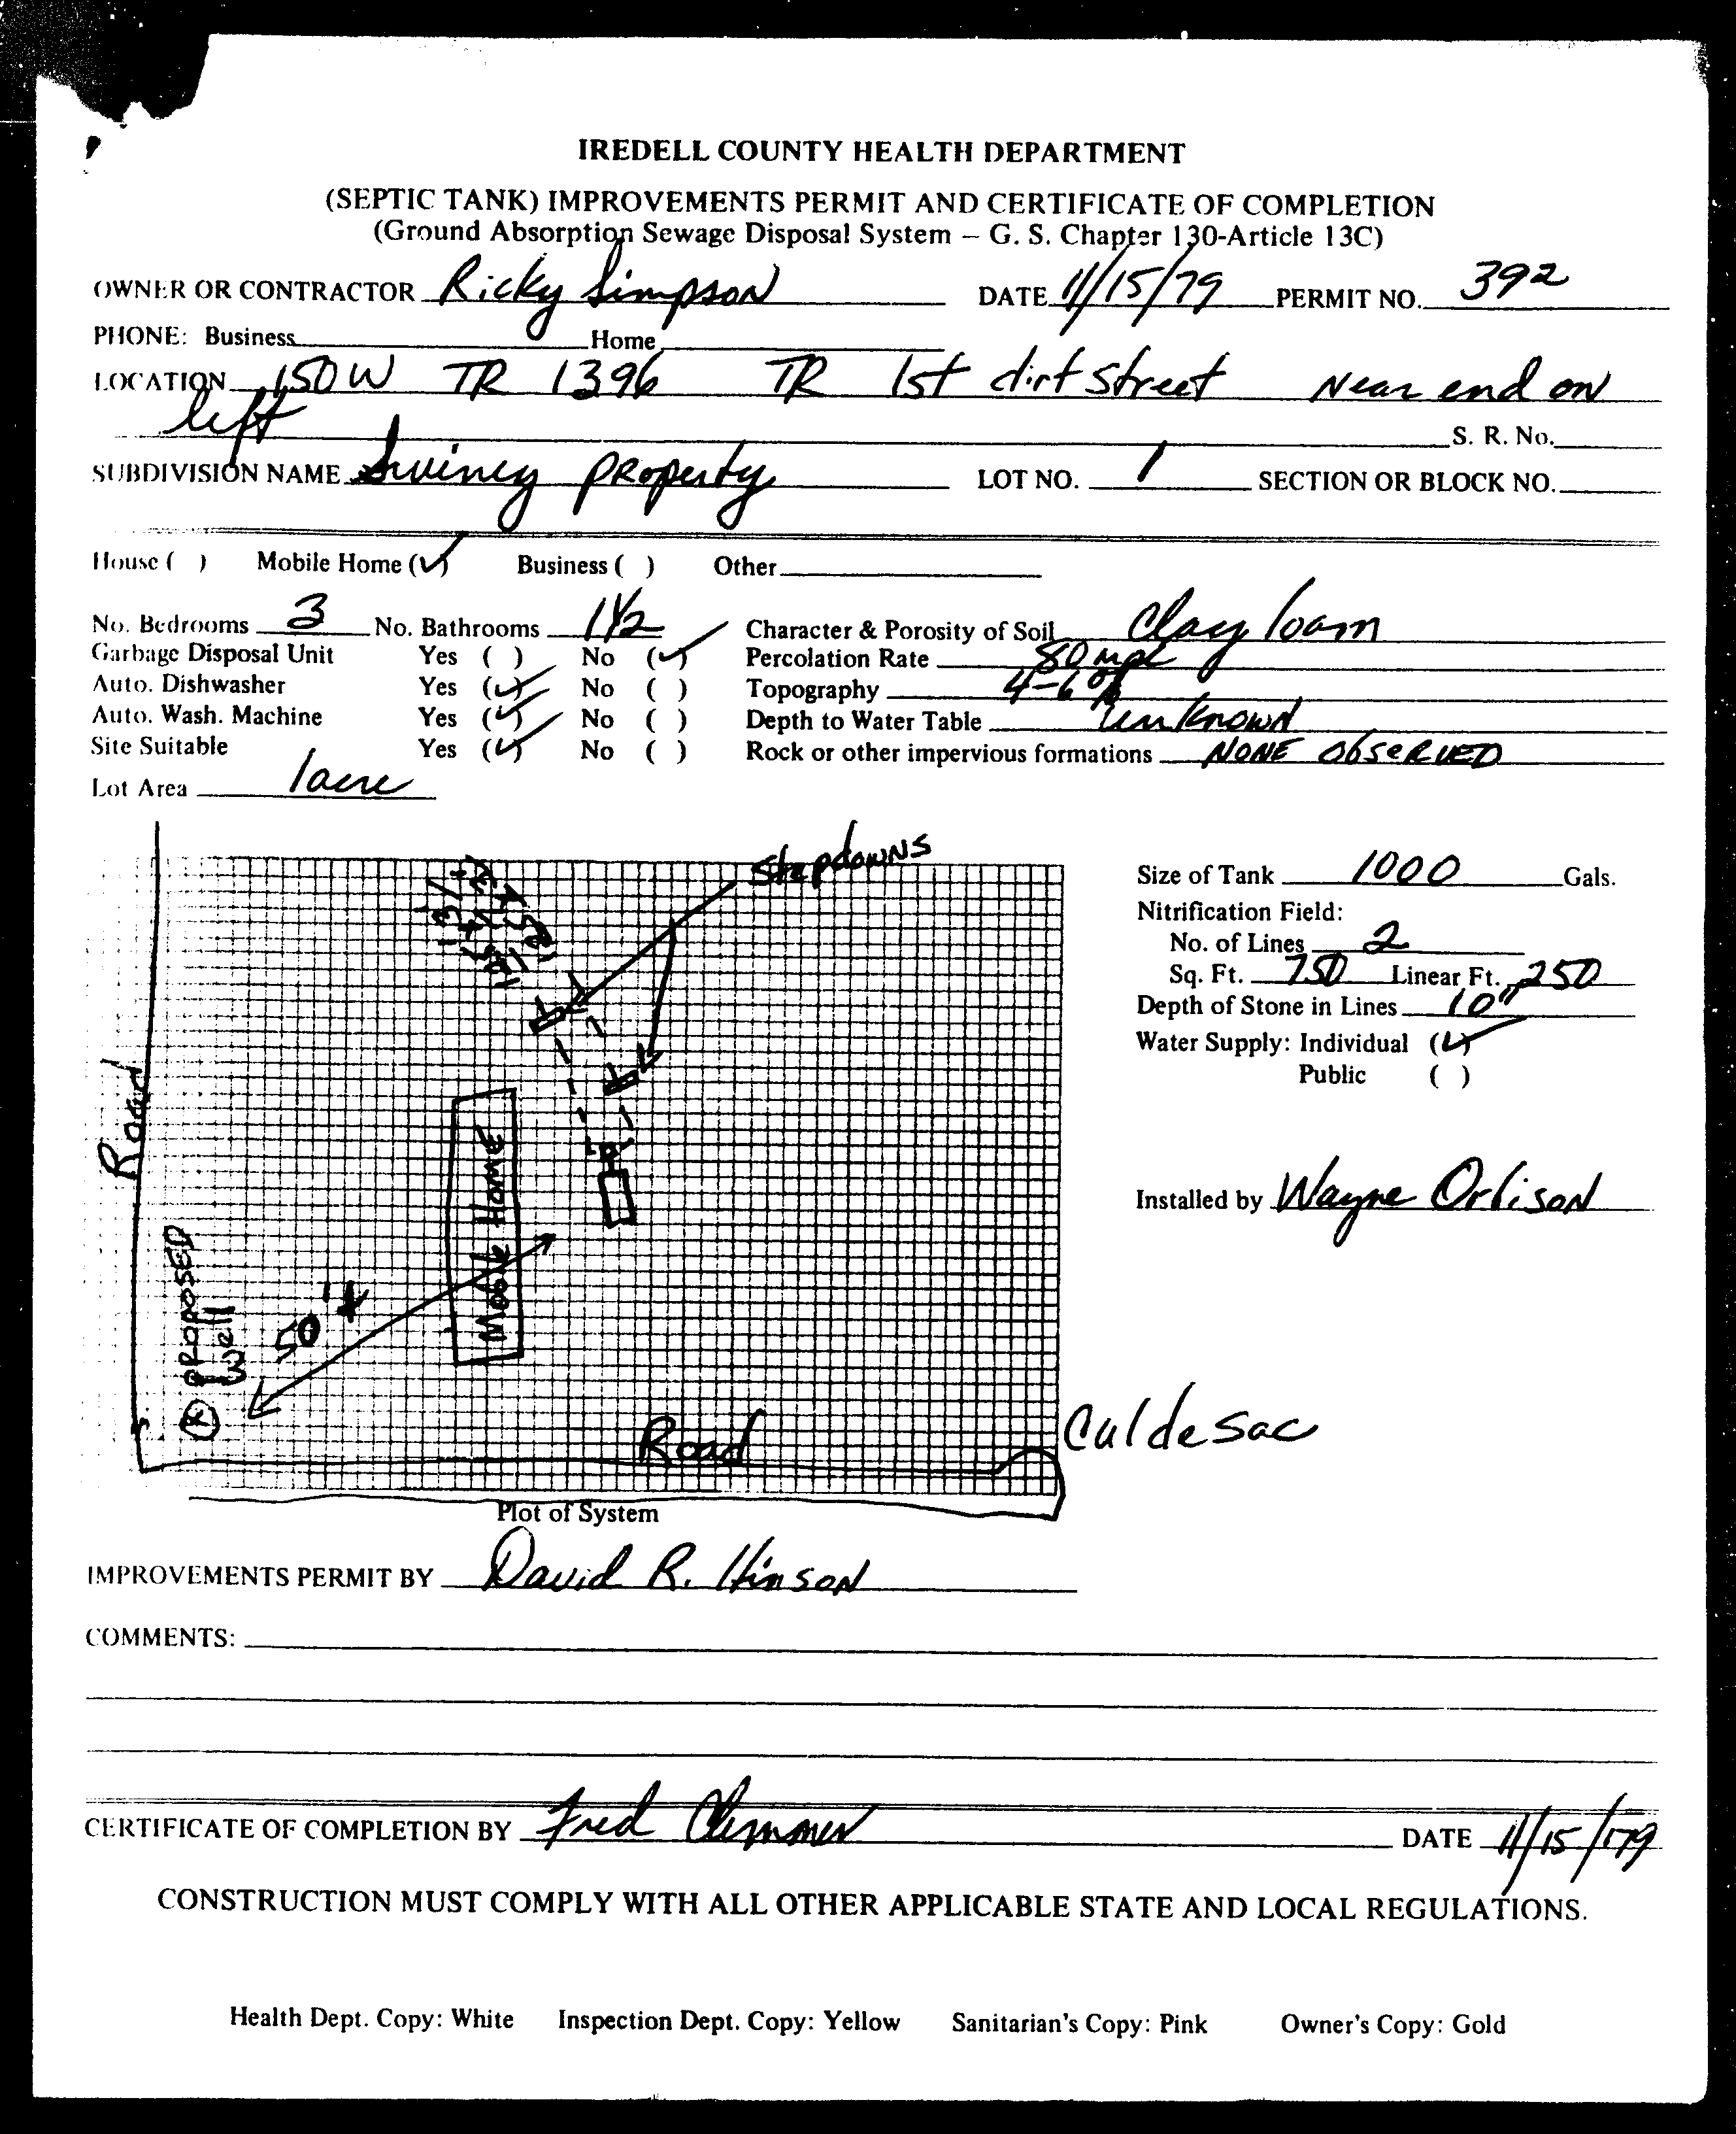 IREDELL COUNTY HEALTH DEPARTMENT
(SEPTIC TANK) IMPROVEMENTS PERMIT AND CERTIFICATE OF COMPLETION
(Ground Absorption Sewage Disposal System – G. S. Chapter 130-Article 13C)
OWNER OR CONTRACTOR Ricky Simpson DATE 11/15/79 PERMIT NO. 392
PHONE: Business Home
LOCATION 150 W TR 1396 TR 1st dirt street Near end on
left S. R. No.
SUBDIVISION NAME property LOT NO. 1 SECTION OR BLOCK NO.
House ( ) Mobile Home (✓) Business ( ) Other
No. Bedrooms 3 No. Bathrooms 1 1/2 Character & Porosity of Soil Clay loam
Garbage Disposal Unit Yes ( ) No (✓) Percolation Rate 80 mpi
Auto. Dishwasher Yes (✓) No ( ) Topography 4-6%
Auto. Wash. Machine Yes (✓) No ( ) Depth to Water Table unknown
Site Suitable Yes (✓) No ( ) Rock or other impervious formations NONE ObSeRVED
Lot Area 1 acre
Stepdowns
Size of Tank 1000 Gals.
Nitrification Field:
No. of Lines 2
Sq. Ft. 750 Linear Ft. 250
Depth of Stone in Lines 10"
Water Supply: Individual (✓)
Public ( )
Road
Mobile Home
Installed by Wayne Orbison
PROPOSED
Well
50'+
Road
Culdesac
Plot of System
IMPROVEMENTS PERMIT BY David R. Hinson
COMMENTS:
CERTIFICATE OF COMPLETION BY Fred Clemmer DATE 11/15/79
CONSTRUCTION MUST COMPLY WITH ALL OTHER APPLICABLE STATE AND LOCAL REGULATIONS.
Health Dept. Copy: White Inspection Dept. Copy: Yellow Sanitarian's Copy: Pink Owner's Copy: Gold